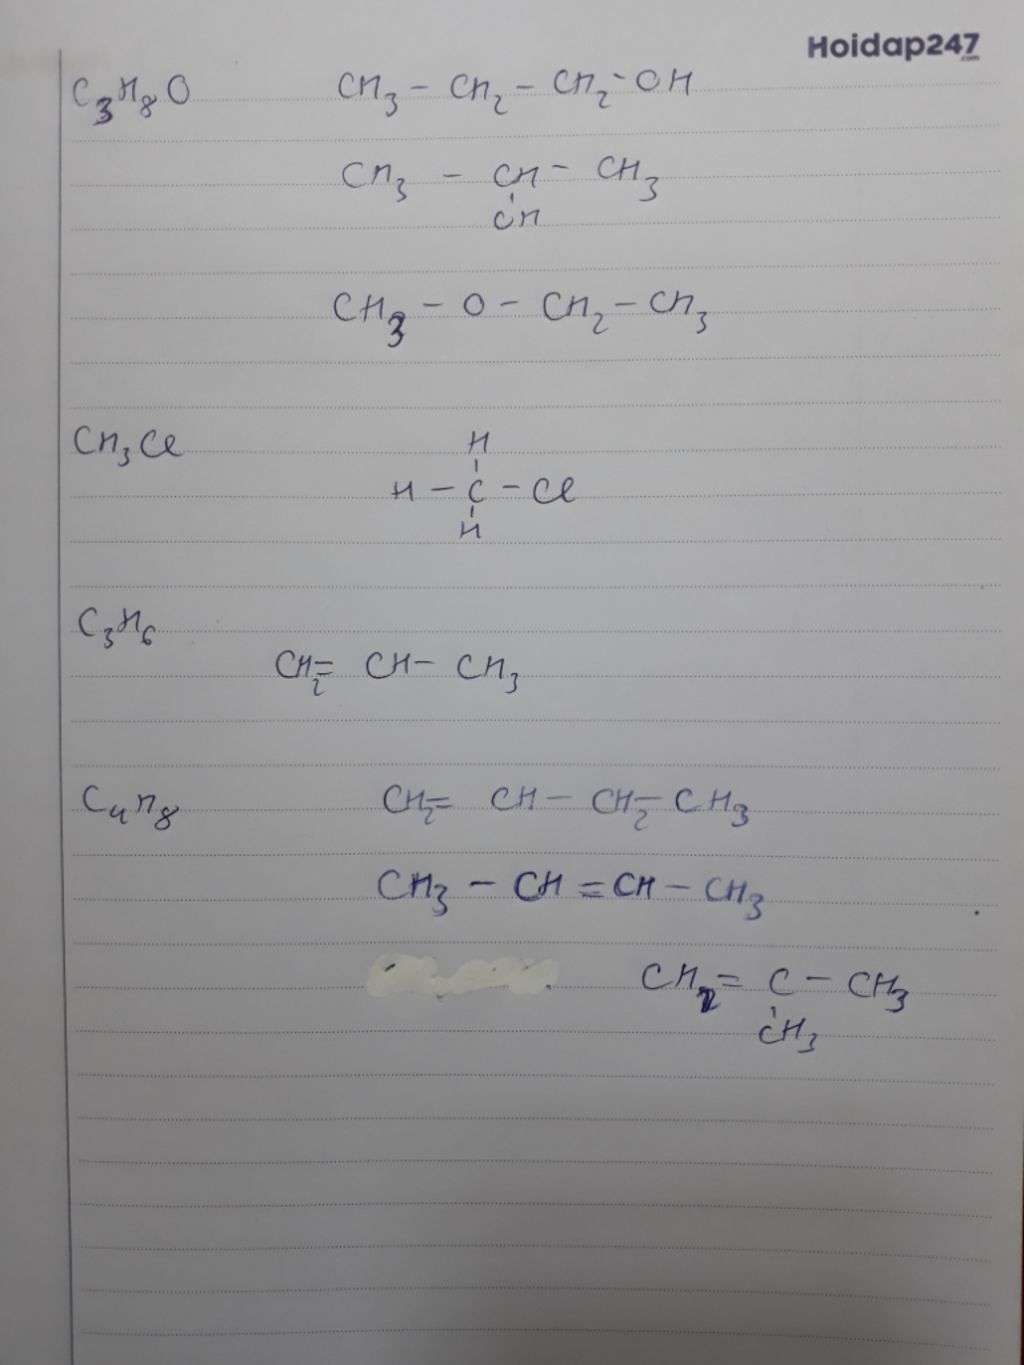 Hoidap247
.com
C3H8O CH3 - CH2 - CH2 - OH
CH3 - CH - CH3
OH
CH3 - O - CH2 - CH3
CH3Cl
H
H - C - Cl
H
C3H6
CH2 = CH - CH3
C4H8 CH2 = CH - CH2 - CH3
CH3 - CH = CH - CH3
CH2 = C - CH3
CH3